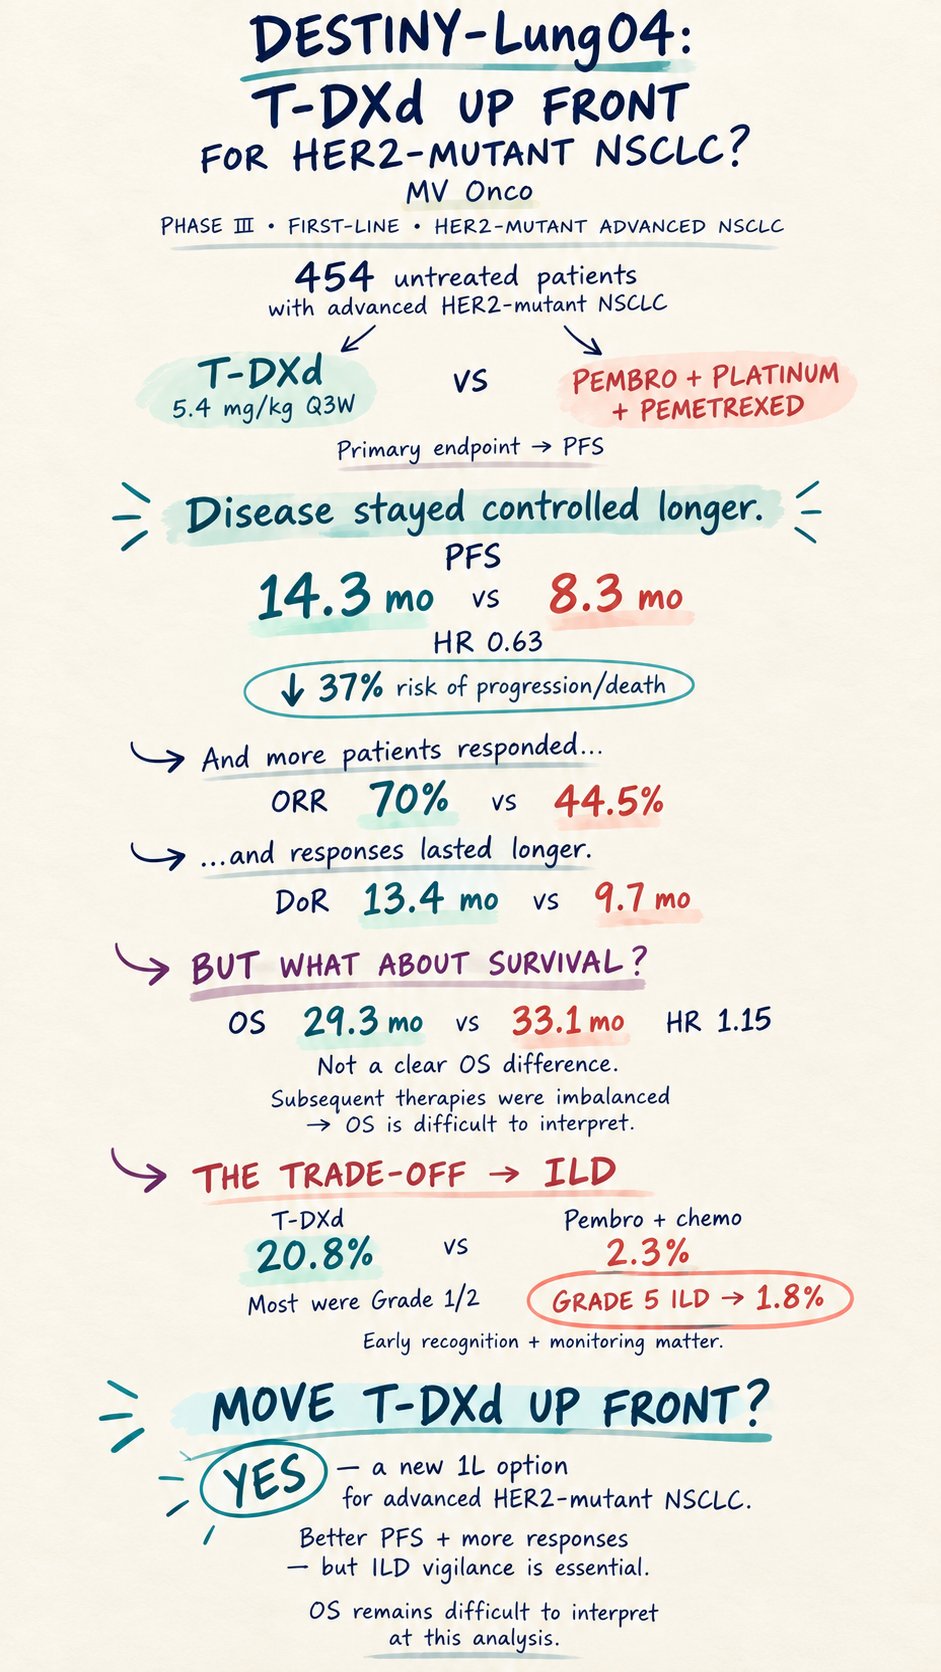 DESTINY-Lung04:
T-DXd UP FRONT
FOR HER2-MUTANT NSCLC?
MV Onco
PHASE III • FIRST-LINE • HER2-MUTANT ADVANCED NSCLC
454 untreated patients
with advanced HER2-mutant NSCLC
T-DXd
5.4 mg/kg Q3W
VS
PEMBRO + PLATINUM
+ PEMETREXED
Primary endpoint → PFS
Disease stayed controlled longer.
PFS
14.3 mo vs 8.3 mo
HR 0.63
↓ 37% risk of progression/death
And more patients responded...
ORR 70% vs 44.5%
...and responses lasted longer.
DoR 13.4 mo vs 9.7 mo
BUT WHAT ABOUT SURVIVAL?
OS 29.3 mo vs 33.1 mo HR 1.15
Not a clear OS difference.
Subsequent therapies were imbalanced
→ OS is difficult to interpret.
THE TRADE-OFF → ILD
T-DXd
20.8%
Most were Grade 1/2
vs
Pembro + chemo
2.3%
GRADE 5 ILD → 1.8%
Early recognition + monitoring matter.
MOVE T-DXd UP FRONT?
YES — a new 1L option
for advanced HER2-mutant NSCLC.
Better PFS + more responses
— but ILD vigilance is essential.
OS remains difficult to interpret
at this analysis.